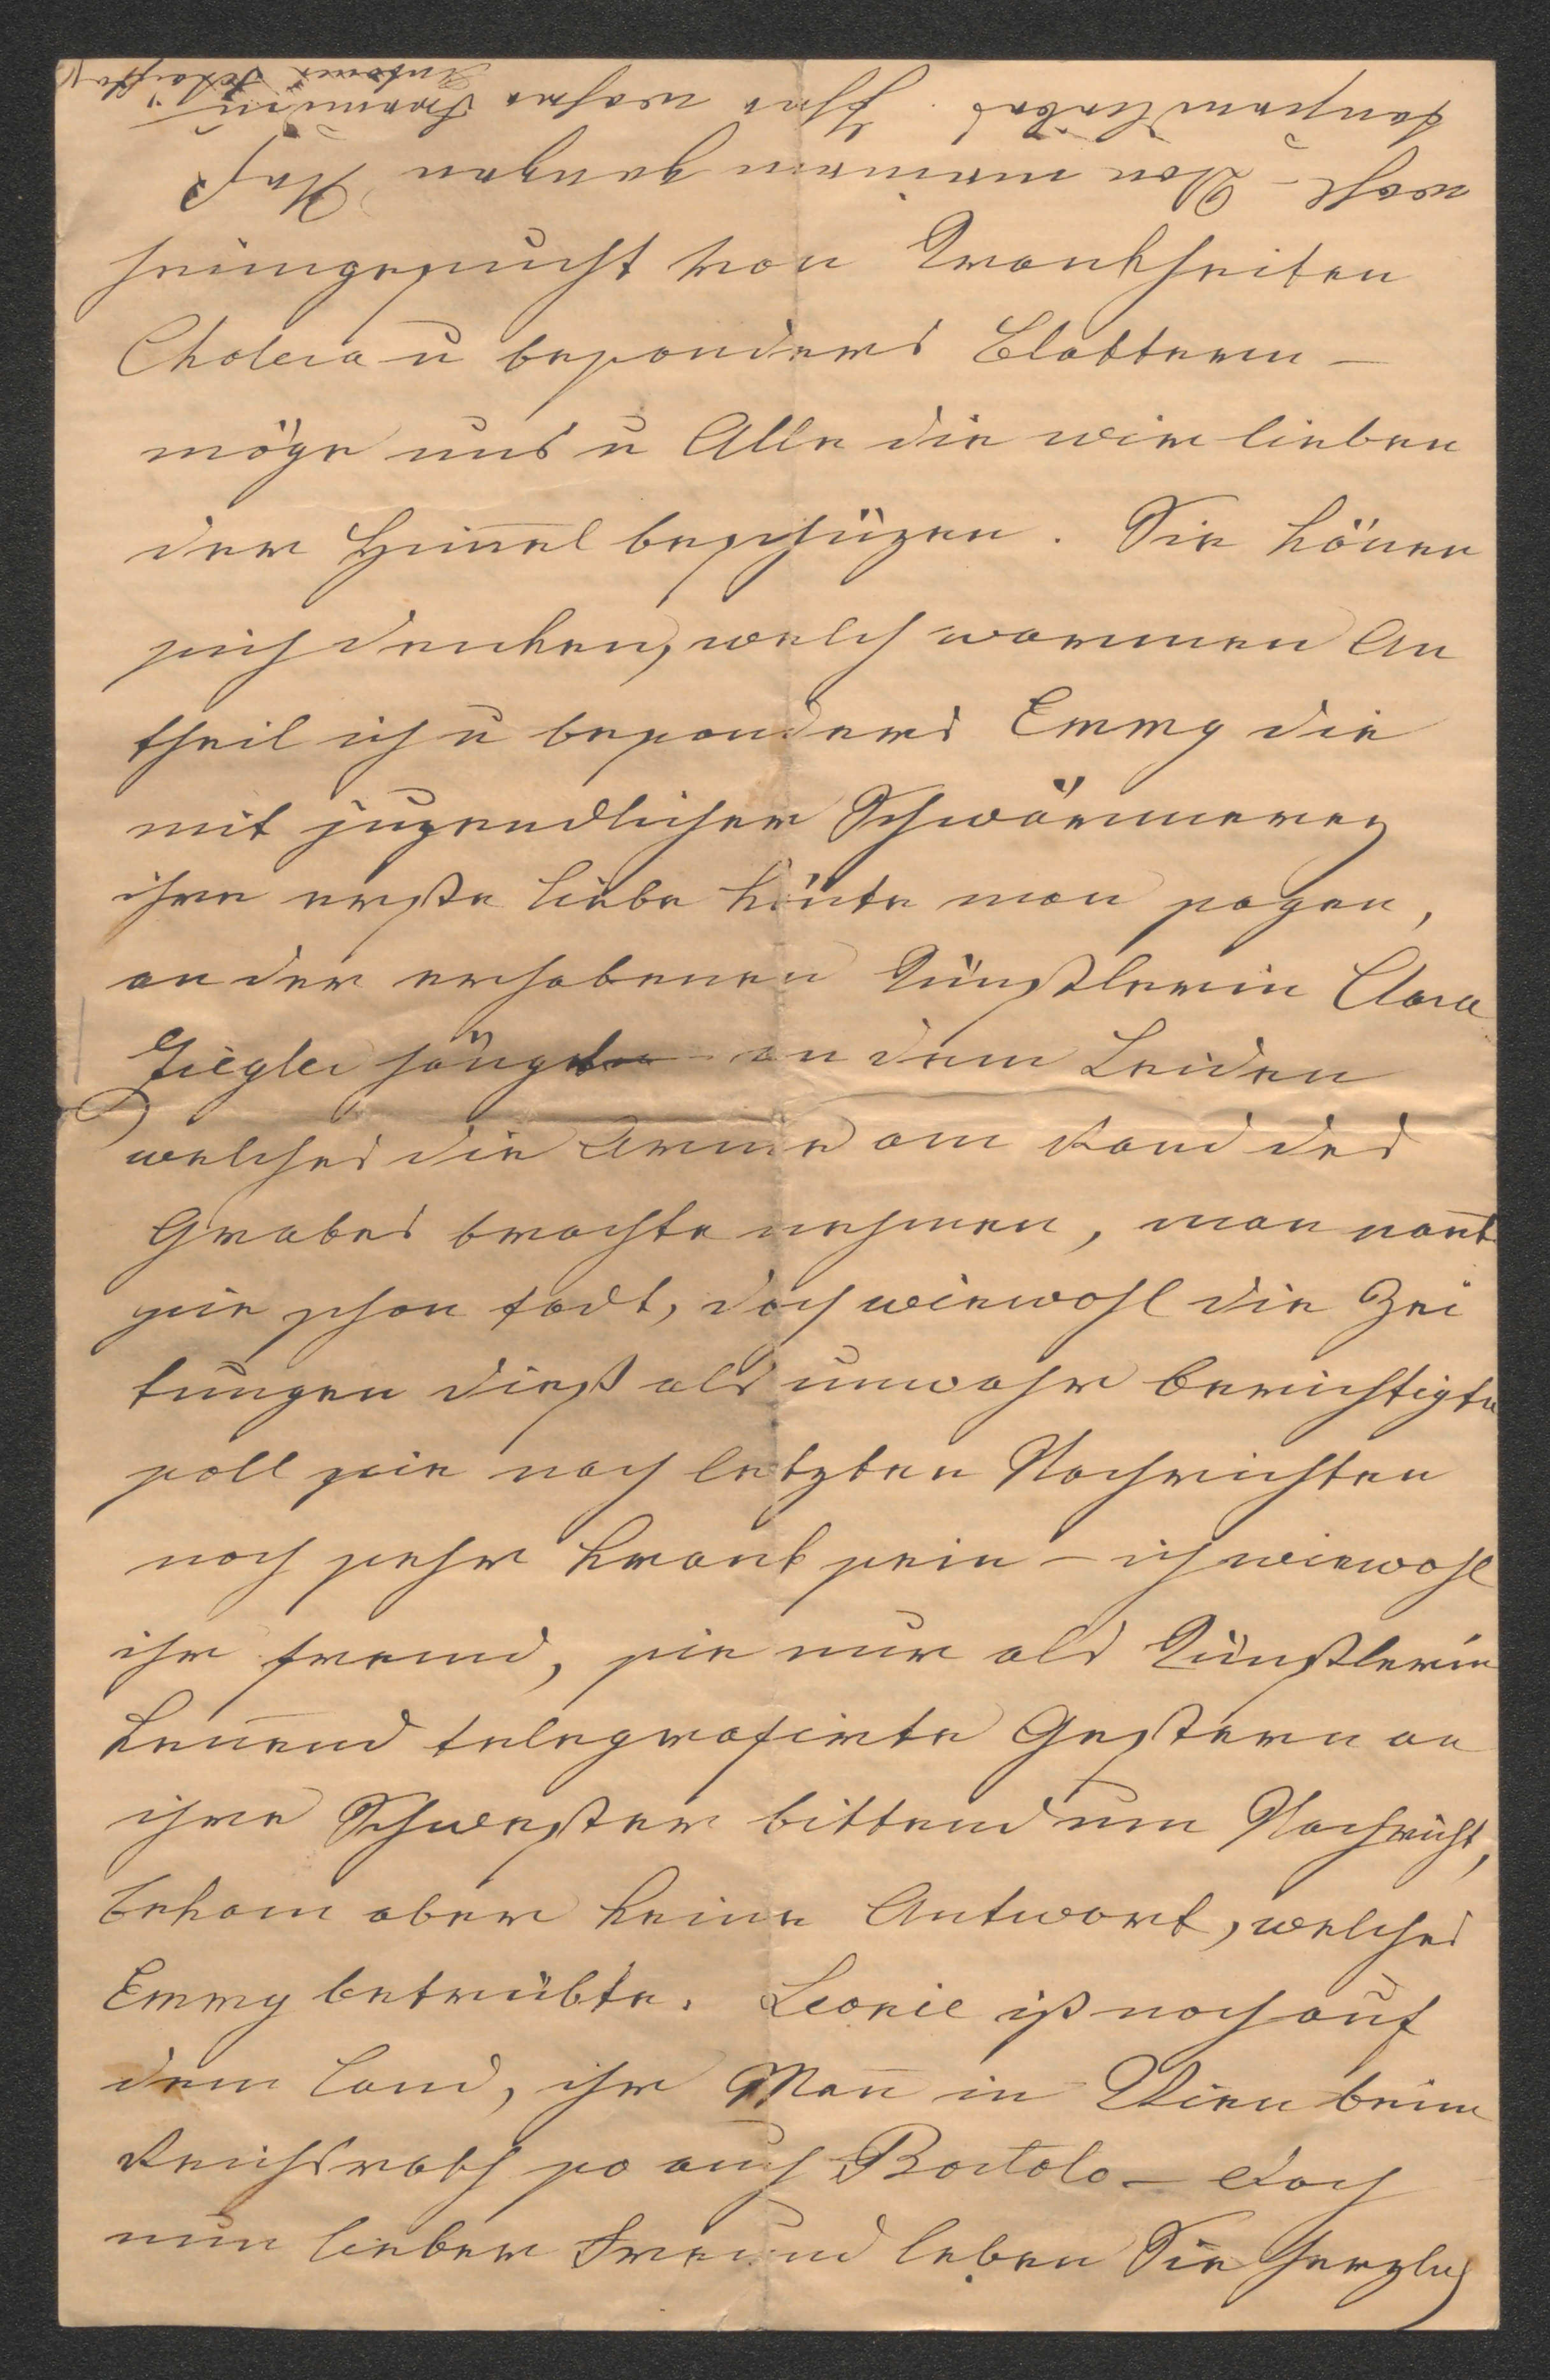 heimgesucht von Krankheiten
Cholera u besonders Blattern –
möge uns u Alle die wir lieben
der Him̅el beschüzen. Sie kön̅en
sich denken, welch warmen An
theil ich u besonders Emmy die
mit jugendlicher Schwärmerey
ihre erste Liebe könte man sagen,
an der erhabenen Künstlerin Clara
Ziegler hängt an dem Leiden
welches die Arme am Rand des
Grabes brachte nehmen, man nan̅t
sie schon todt, doch wiewohl die Zei
tungen dieß als unwahr berichtigte
soll sie nach letzten Nachrichten
noch sehr krank sein – ich wiewohl
ihr fremd, sie nur als Künstlerin
ken̅end telegrafirte Gestern an
ihre Schwester bittend um Nachricht,
bekam aber keine Antwort, welches
Emmy betrübte. Leonie ist noch auf
dem Land, ihr Man̅ in Wien beim
Reichsrath so auch Bartolo – Doch
nun lieber Freund leben Sie herzlich
wohl – Von meinem ganzen Haus
tausend Liebes. Ihre wahre Freundin
Antonie